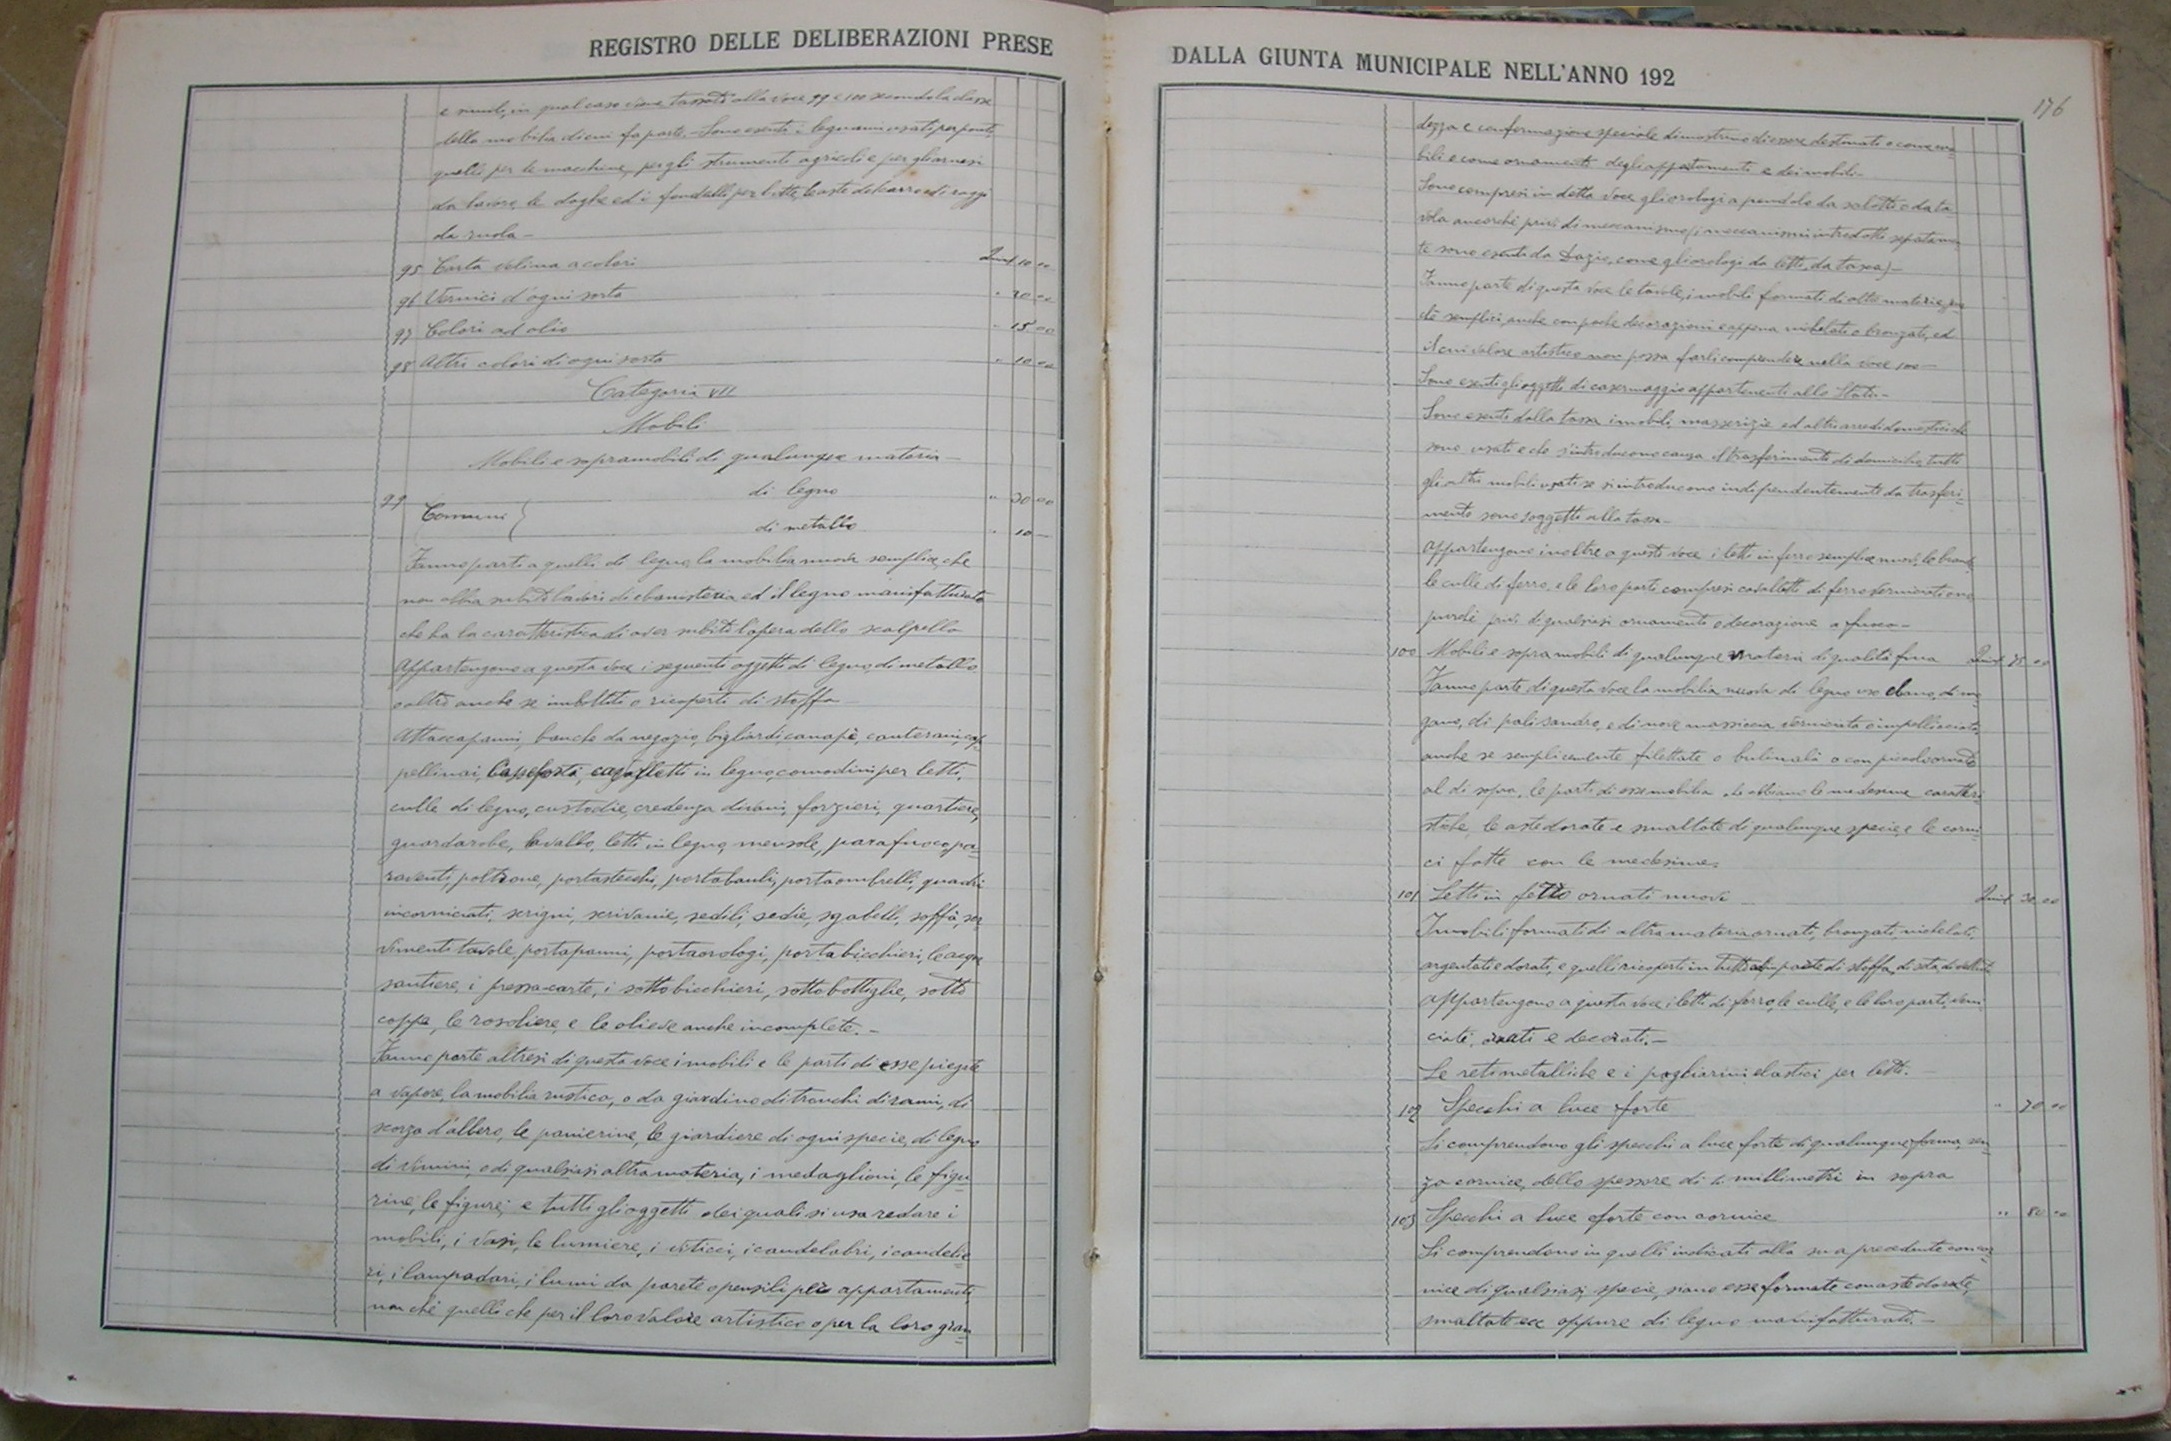 REGISTRO DELLE DELIBERAZIONI PRESE
e simili, in qual caso viene tassati alla voce 99 e 100 secondo la classe
della mobilia di cui fa parte. - Sono esenti i legnami usati per ponti
quelli per le macchine, per gli strumenti agricoli e per gli arnesi
da lavoro, le doghe ed i fondelli per botti, le aste da carro ed i raggi
da ruola -
95 Carta velina a colori Quint. 10 00
96 Vernici d'ogni sorta " 20 00
97 Colori ad olio " 15 00
98 Altri colori di ogni sorta " 10 00
Categoria VII
Mobili
Mobili e sopramobili di qualunque materia -
99 Comuni { di legno " 20 00
di metallo " 10 -
Fanno parti a quelli di legno, la mobilia nuova semplice, che
non abbia subito lavori di ebanisteria ed il legno manifatturato
che ha la caratteristica di aver subito l'opera dello scalpello
Appartengono a questa voce i seguenti oggetti di legno, di metallo
o altro anche se imbottiti o ricoperti di stoffa -
Attaccapanni, banche da negozio, bigliardi, canapè, canterani, cap=
pellinai, Casseforti, cavalletti in legno comodini per letti,
culle di legno, custodie, credenza divani, forzieri, quartiere,
guardarobe, lavabo, letti in legno, mensole, parafuoco pa=
raventi, poltrone, portastecchi, portabauli, portaombrelli, quadri
incorniciati, scrigni, scrivanie, sedili, sedie, sgabelli, soffà, ser=
vimenti tavole portapanni, portaorologi, portabicchieri, le acqua
santiere, i pressa-carte, i sottobicchieri, sottobottiglie, sotto
coppe, le rosoliere, e le oliere anche incomplete. -
Fanno parte altresì di questa voce i mobili e le parti di esse piegate
a vapore, la mobilia rustica, o da giardino di tronchi di rami, di
scorza d'albero, le panierine, le giardiere di ogni specie, di legno
di vimini, o di qualsiasi altra materia, i medaglioni, le figu=
rine, le figure, e tutti gli oggetti dei quali si usa redare i
mobili, i vasi, le lumiere, i viticci, i candelabri, i candelie
ri, i lampadari, i lumi da parete o pensili per appartamenti,
non chè quelli che per il loro valore artistico o per la loro gran=
DALLA GIUNTA MUNICIPALE NELL'ANNO 192
176
dezza e conformazione speciale dimostrino di essere destinati o come mo=
bili o come ornamenti degli appartamenti e dei mobili -
Sono compresi in detta voce gli orologi a pendolo da salotto o da ta
vola ancorchè privi di meccanismo (i meccanismi introdotti separatamen
te sono esenti da Dazio, come gli orologi da letti, da tasca) -
Fanno parte di questa voce le tavole, i mobili formati di altre materie, pur
chè semplici, anche con poche decorazioni e appena nichelati o bronzati, ed
il cui valore artistico non possa farli comprendere nella voce 100 -
Sono esenti gli oggetti di casermaggio appartenenti allo Stato -
Sono esenti dalla tassa i mobili, masserizie ed altri arredi domestici che
sono usati e che s'introducono causa il trasferimento di domicilio, tutti
gli altri mobili usati se si introducono indipendentemente da trasferi=
mento sono soggetti alla tassa -
Appartengono inoltre a questa voce i letti in ferro semplice nuovi, le brande
le culle di ferro, e le loro parti compresi cavalletti di ferro verniciati
purchè privi di qualsiasi ornamento e decorazione a fuoco -
100 Mobili e sopramobili di qualunque materia di qualità fina Quint.
Fanno parte di questa voce la mobilia nuova di legno uso ebano, di mo
gano, di palisandro, e di noce massiccia verniciata e impelliciata
anche se semplicemente filettate o bulinate o con piccoli ornati
al di sopra, le parti di esse mobilia che abbiano le medesime caratteri=
stiche, le aste dorate e smaltate di qualunque specie, e le corni
ci fatte con le medesime.
101 Letti in ferro ornati nuovi Quint. 30 00
I mobili formati di altra materia ornati, bronzati, nichelati,
argentati e dorati, e quelli ricoperti in tutto o in parte di stoffa, di seta, di velluto
Appartengono a questa voce i letti di ferro, le culle, e le loro parti, verni
ciati, ornati e decorati. -
Le reti metalliche e i pagliarini elastici per letti. -
102 Specchi a luce forte " 70 00
Si comprendono gli specchi a luce forte di qualunque forma, sen
za cornice, dello spessore di 4 millimetri in sopra
103 Specchi a luce forte con cornice " 80 00
Si comprendono in quelli indicati alla voce precedente con cor=
nice di qualsiasi specie, siano esse formate con aste dorate,
smaltate ecc oppure di legno manifatturato. -